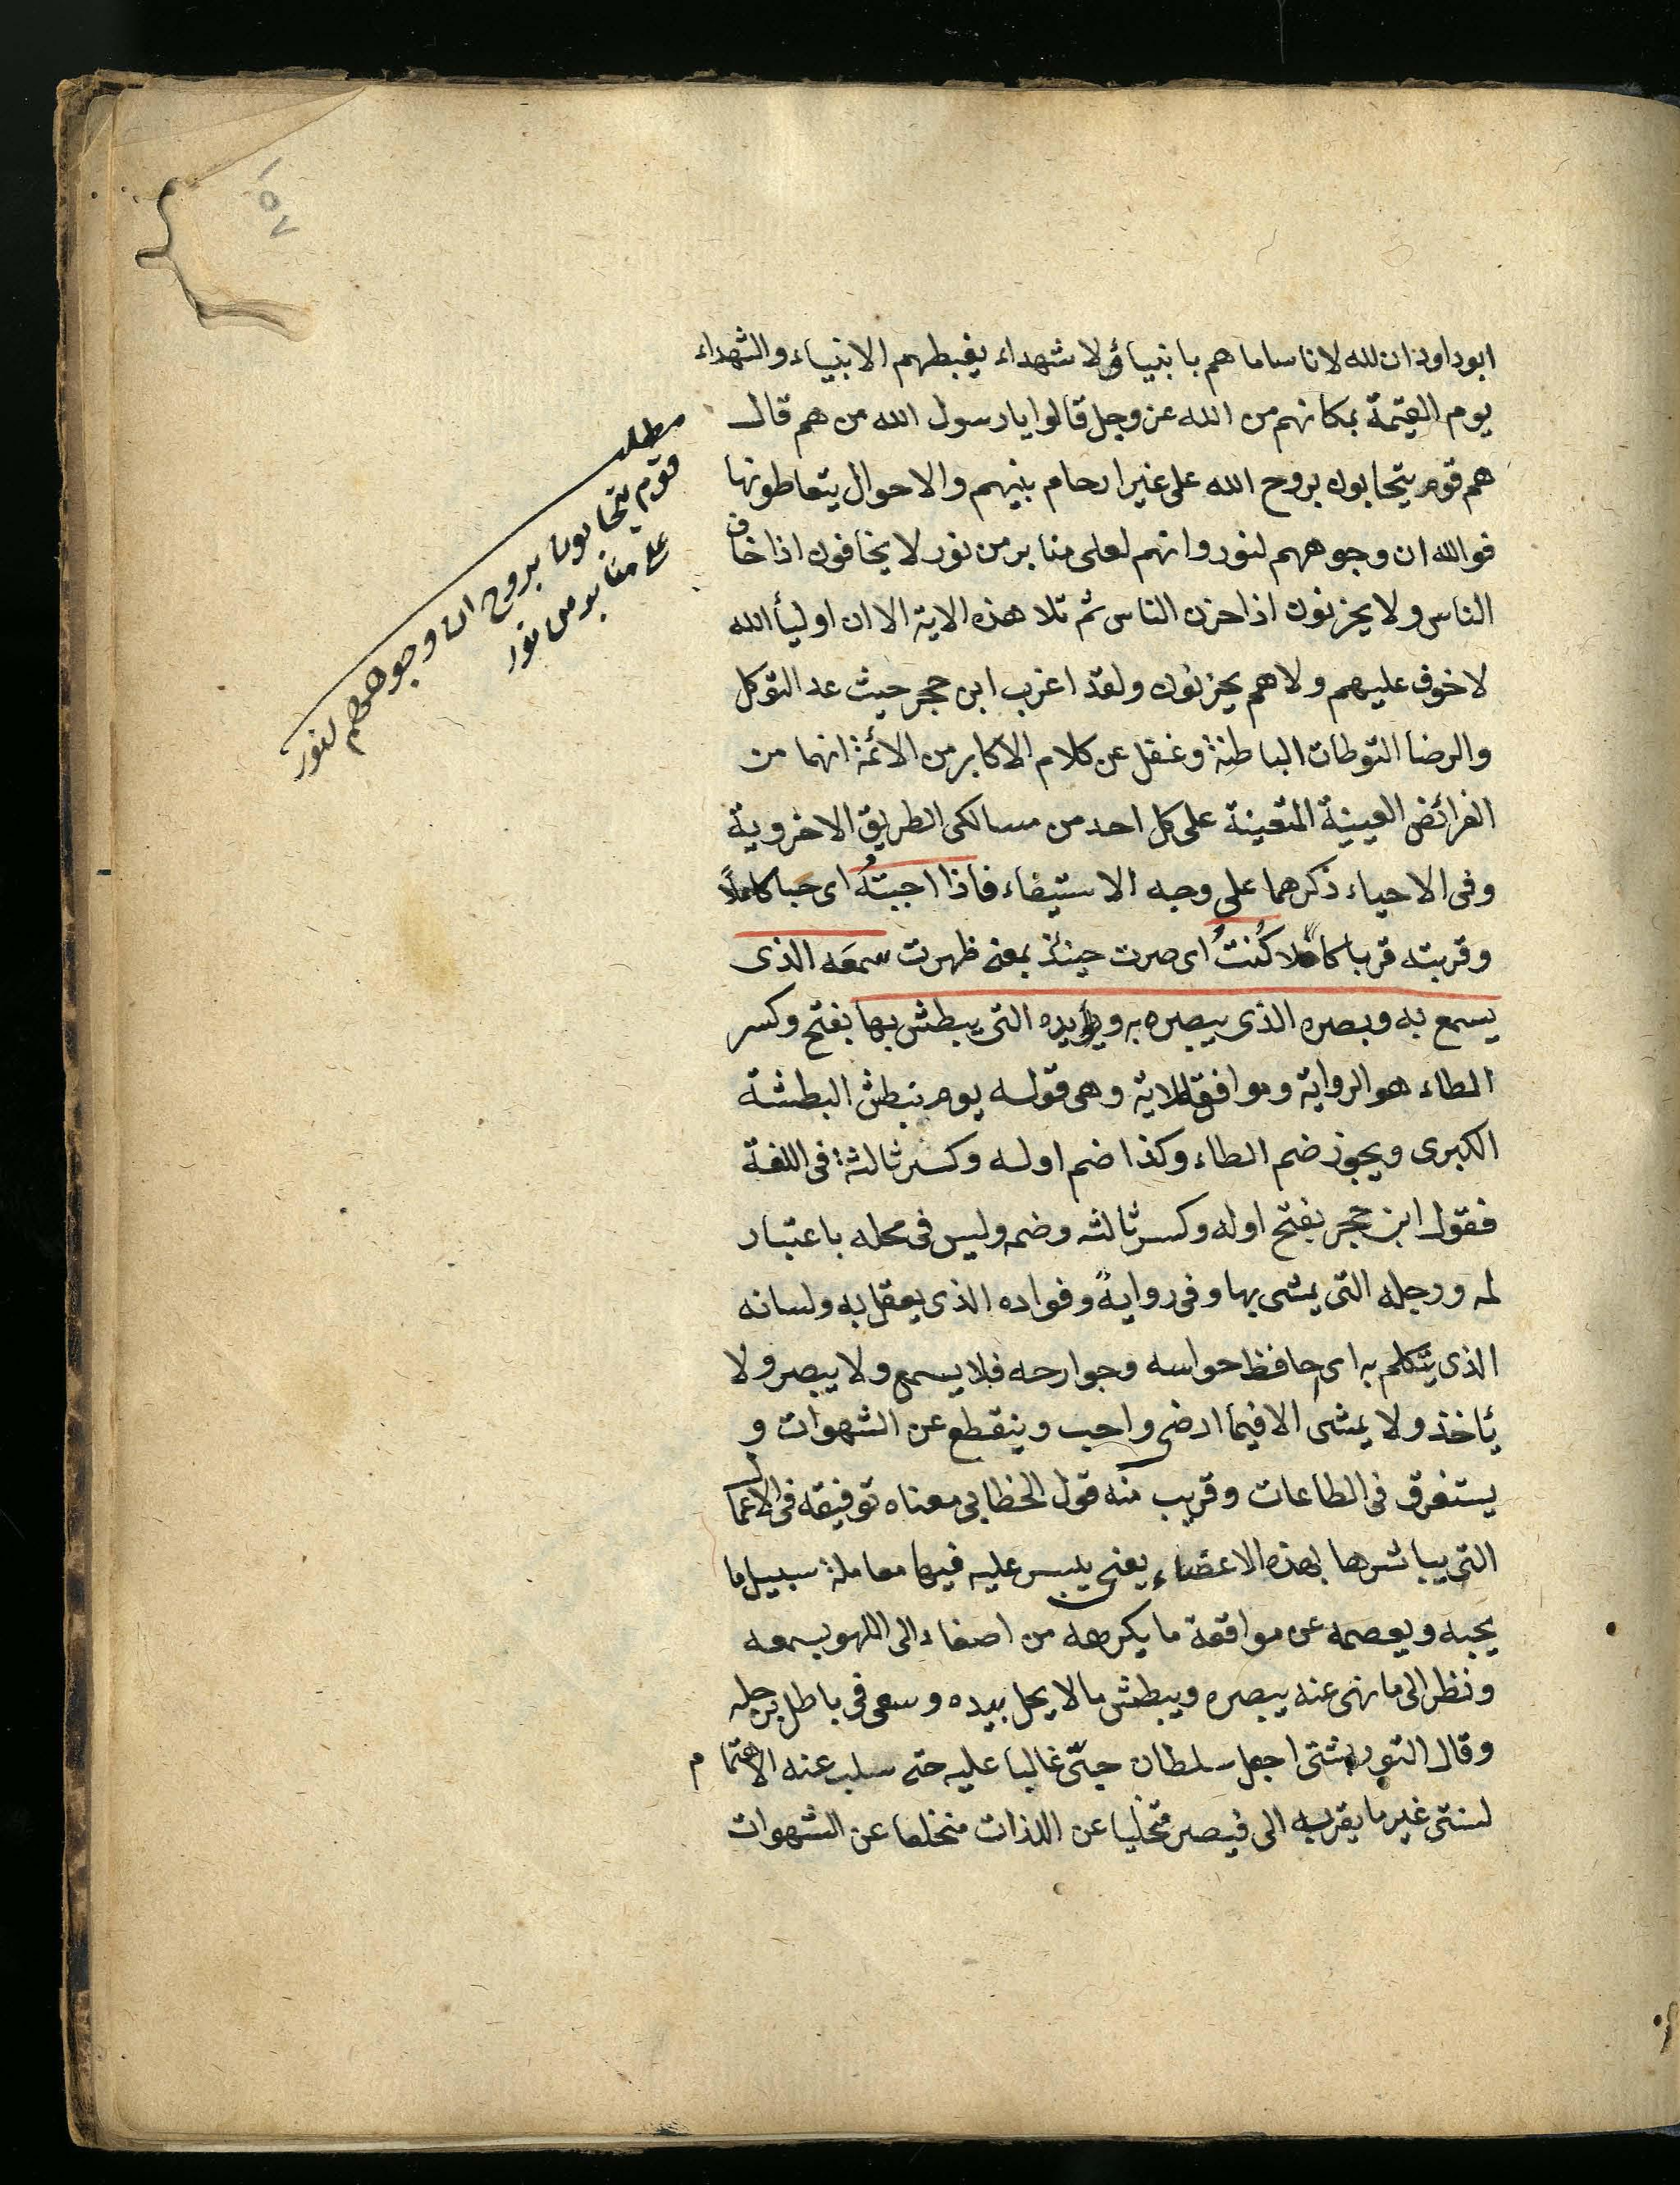 ١٥٧
ابوداود ان لله لاناسا ما هم بانبياء ولا شهداء يغبطهم الانبياء والشهداء
يوم القيمة بمكانهم من الله عز وجل قالوا يا رسول الله من هم قال
هم قوم يتحابون بروح الله على غير ارحام بينهم والاحوال يتعاطونها
فوالله ان وجوههم لنور وانهم لعلى منابر من نور لا يخافون اذا خاف
الناس ولا يحزنون اذا حزن الناس ثم تلا هذه الاية الا ان اوليأ الله
لا خوف عليهم ولا هم يحزنون ولقد اغرب ابن حجر حيث عد التوكل
والرضا التوطان الباطنة وغفل عن كلام الاكابر من الائمة انهما من
الفرائض العينية المتعينة على كل احد من مسالكى الطريق الاخروية
وفى الاحياء ذكرهما على وجه الاستيفاء فاذا احببتُه اى حبا كاملاً
وقربته قربا كاملا كُنتُ اى صرت حينئذ بمعنى ظهرت سمعَه الذى
يسمع به وبصره الذى يبصره به ويده التى يبطش بها بفتح وكسر
الطاء هو الرواية وموافقة للاية وهى قوله يوم نبطش البطشة
الكبرى ويجوز ضم الطاء وكذا ضم اوله وكسر ثالثة فى اللغة
فقول ابن حجر بفتح اوله وكسر ثالثه وضمه وليس فى محله باعتبار
له ورجله التى يمشى بها وفى روايةً وفواده الذى يعقل به ولسانه
الذى يتكلم به اى حافظ حواسه وجوارحه فلا يسمع ولا يبصر ولا
يأخذ ولا يمشى الا فيما ارضى واحب وينقطع عن الشهوات و
يستغرق فى الطاعات وقريب منه قول الخطابى معناه توفيقه فى الاعمال
التى يباشرها بهذه الاعضاء يعنى ييسر عليه فيها معاملة سبيل ما
يحبه ويعصمه عن مواقعة ما يكرهه من اصغاء الى اللهو بسمعه
ونظر الى ما نهى عنه ببصره ويبطش مالا يحل بيده وسعى فى باطل برجله
وقال التوربشتى اجعل سلطان حبّى غالبا عليه حتى سلب عنه الاهتمام
لشئ غير ما يقربه الى فيصير متخليا عن اللذات منخلعا عن الشهوات
مطلب
قوم يتحابون بروح ان وجوههم لنور
على منابر من نور